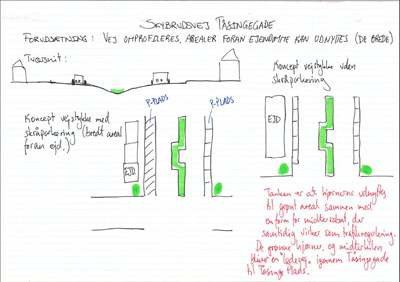 SKYBRUDSVEJ TÅSINGEGADE
FORUDSÆTNING: VEJ OMPROFILERES, AREALER FORAN EJENDOMME KAN UDNYTTES (DE BREDE)
Tværsnit:
Koncept vejstykke uden
skråparkering
P-PLADS
P-PLADS
Koncept vejstykke med
skråparkering (bredt areal
foran ejd.)
EJD
EJD
Tanken er at hjørnerne udnyttes
til grønt areal sammen med
en form for midterrabat, der
samtidig virker som trafikregulering.
De grønne hjørner, og midterhelle
bliver en "ledevej" igennem Tåsingegade
til Tåsinge Plads.